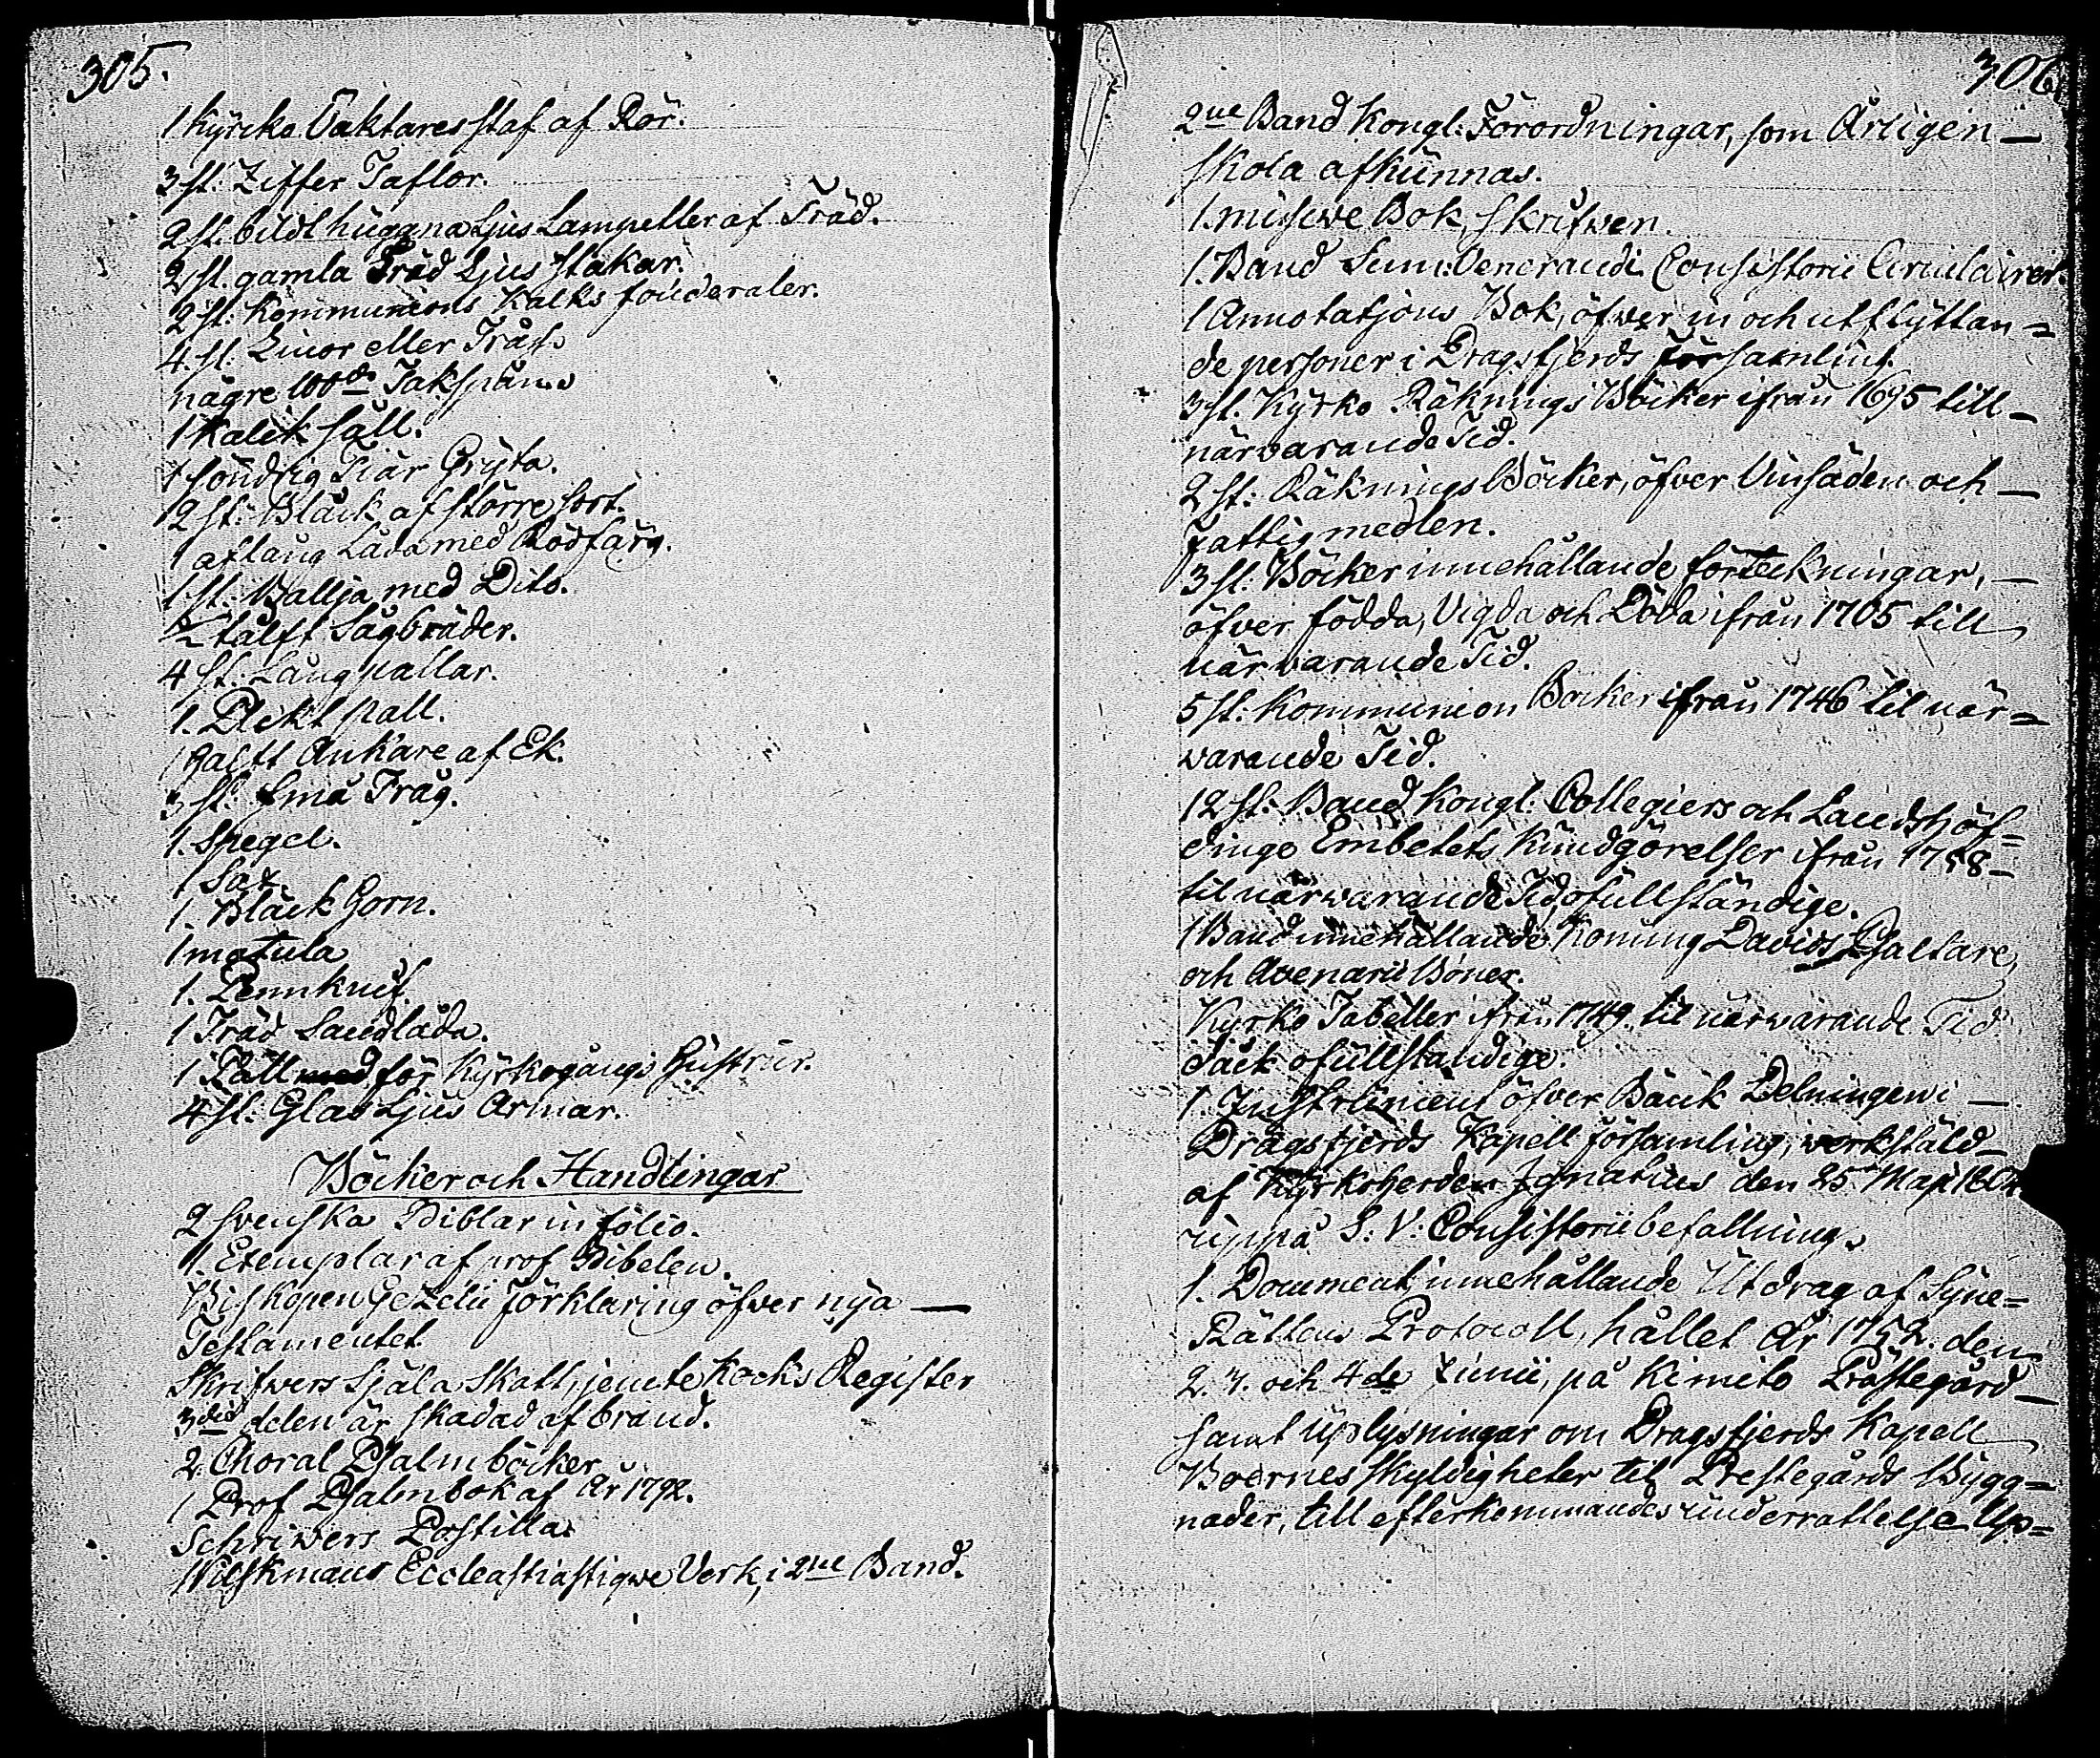 305.
1 Kyrcko Väktares staf af Rör.
3 st: Ziffer Taflor.
2 st. bildthuggna Ljus Lampetter af Träd.
2 st. gamla Träd Ljus stakar.
2 st: Kommunions Kalks fouderaler.
4. st. Linor eller Tråss
någre 100de Takspån
1 Kalck såll.
1 söndrig Tiär Gryta.
2 st: Bläck af större sort.
1 aflång Låda med Rödfärg.
1 st: Ballja med Dito.
½ tålft Sågbräder.
4 st. Långpallar.
1. Plickt pall.
1 halft Ankare af Ek.
3 st: små Tråg.
1. Spegel.
1 Sax.
1. Bläck horn.
1 matula
1. Pennknif
1 Träd Sandlåda.
1 Pall med för Kyrkogångs Hustrur.
4 st: Glas Ljus Armar.
Böcker och Handlingar
2 Svenska Biblar in folio.
1. Exemplar af prof Bibelen.
Biskopen Gezelii förklaring öfwer nya —
Testamentet
Skrifwers Själa Skatt, jemte Kocks Register
3die delen är skadad af brand.
2. Choral Psalmböcker
1 Prof Psalmbok af År 1792.
Schriwers Postilla
Wilskmans Eccleasthiastiqwe Verk, i 2ne Band.
306.
2ne Band Kongl: Förordningar, som Årligen —
skola afkunnas.
1. missive Bok, skrifwen.
1. Band Sum: Venerandi Consistorii Circulairer.
1 Annotatjons Bok, öfwer in och utflyttan=
de personer i Dragsfjerds församling.
3 st. Kyrko Räknings Böcker ifrån 1695 till —
närwarande Tid.
2 st: Räknings Böcker, öfver Vinsäden och —
fattigmedlen.
3 st: Böcker innehållande förteckningar, —
öfver födda, Vigda och Döda ifrån 1705 till
närwarande Tid.
5 st: Kommunion Böcker ifrån 1746 til när=
warande Tid.
12 st: Band Kongl: Collegiers och Landshöf=
dinge Embetets Kundgörelser ifrån 1758 —
til närwarande Tid, ofullständige.
1 Band innehållande Konung Davids Psaltare,
och Avenarii Böner.
Kyrko Tabeller ifrån 1749. til närwarande Tid
dåck ofullständige.
1. Instrument öfver Bänk Delningen i —
Dragsfjerds Kapell församling, verkstäld —
af Kyrkoherden Ignatius den 25 Maji
uppå S: V: Consistorii befallning.
1. Document, innehållande Utdrag af Syne=
Rättens Protocoll, hållet År 1752. den
2. 3. och 4de Junii, på Kimito Prästegård —
samt Uplysningar om Dragsfjerds Kapell
Boernes skyldigheter til Prestegårds Bygg=
nader, till efterkommandes underrättelse Up=